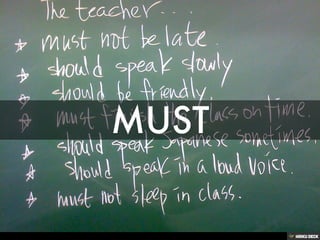 The teacher...
☆ must not be late.
☆ should speak slowly
☆ should be friendly.
☆ must class on time.
MUST
☆ should speak Japanese sometimes.
☆ should speak in a loud voice.
☆ must not sleep in class.
HAIKU DECK